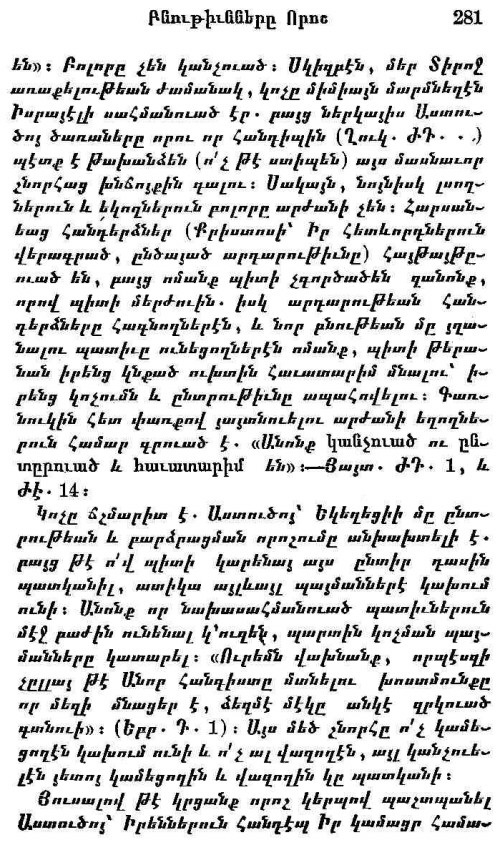 Բնութիւնները Որոշ 281
են»։ Բոլորը չեն կանչուած։ Սկիզբէն, մեր Տիրոջ
առաքելութեան ժամանակ, կոչը միմիայն մարմնեղէն
Իսրայէլի սահմանուած էր. բայց ներկայիս Աստու-
ծոյ ծառաները որու որ հանդիպին (Ղուկ. ԺԴ. . .)
պէտք է թախանձեն (ո՛չ թէ ստիպեն) այս մասնաւոր
շնորհաց խնճոյքին գալու։ Սակայն, նոյնիսկ լսող-
ներուն և եկողներուն բոլորը արժանի չեն։ Հարսան-
եաց հանդերձներ (Քրիստոսի՝ Իր հետևորդներուն
վերագրած, ընծայած արդարութիւնը) հայթայթը-
ուած են, բայց ոմանք պիտի չգործածեն զանոնք,
որով պիտի մերժուին. իսկ արդարութեան հան-
դերձները հագնողներէն, և նոր բնութեան մը յղա-
նալու պատիւը ունեցողներէն ոմանք, պիտի թերա-
նան իրենց կնքած ուխտին հաւատարիմ մնալու՝ ի-
րենց կոչումն և ընտրութիւնը ապահովելու։ Գառ-
նուկին հետ փառքով յայտնուելու արժանի եղողնե-
րուն համար գրուած է. «Անոնք կանչուած ու ըն-
տըրուած և հաւատարիմ են»։—Յայտ. ԺԴ. 1, և
ԺԷ. 14։
Կոչը ճշմարիտ է. Աստուծոյ՝ Եկեղեցիի մը ընտ-
րութեան և բարձրացման որոշումը անխախտելի է.
բայց թէ ո՛վ պիտի կարենայ այս ընտիր դասին
պատկանիլ, ատիկա այլևայլ պայմաններէ կախում
ունի։ Անոնք որ նախասահմանուած պատիւներուն
մէջ բաժին ունենալ կ՚ուզեն, պարտին կոչման պայ-
մանները կատարել։ «Ուրեմն վախնանք, որպէսզի
չըլլայ թէ Անոր հանգիստը մանելու խոստմունքը
որ մեզի մնացեր է, ձեզմէ մէկը անկէ զրկուած
գտնուի»։ (Եբր. Դ. 1)։ Այս մեծ շնորհը ո՛չ կամե-
ցողէն կախում ունի և ո՛չ ալ վազողէն, այլ կանչուե-
լէն յետոյ կամեցողին և վազողին կը պատկանի։
Յուսալով թէ կրցանք որոշ կերպով պաշտպանել
Աստուծոյ՝ Իրեններուն հանդէպ Իր կամացր համա-